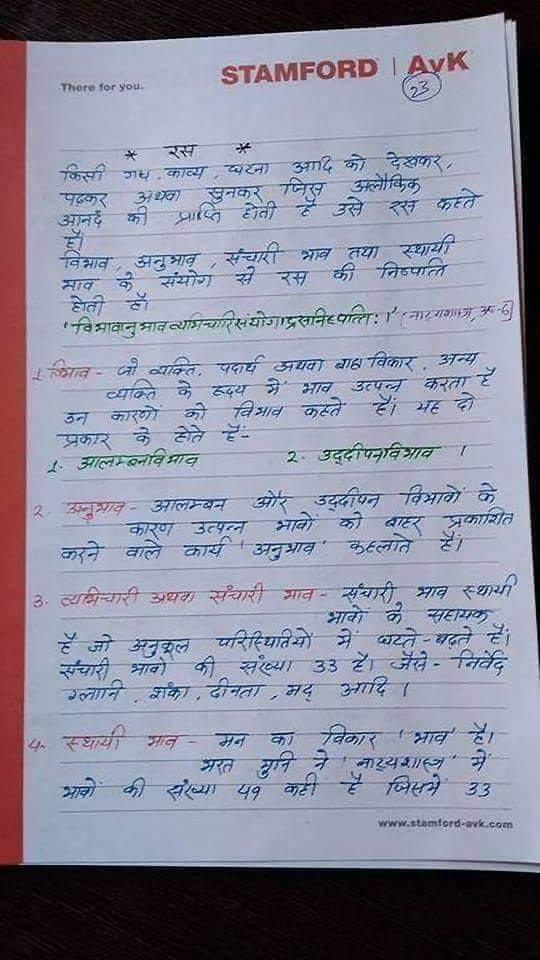 There for you.
STAMFORD | AvK
23
* रस *
किसी गद्य, काव्य, घटना आदि को देखकर,
पढ़कर अथवा सुनकर जिस अलौकिक
आनंद की प्राप्ति होती है उसे रस कहते
है।
विभाव, अनुभाव, संचारी भाव तथा स्थायी
भाव के संयोग से रस की निष्पत्ति
होती है।
'विभावानुभावव्यभिचारिसंयोगाद्रसनिष्पत्तिः।' (नाट्यशास्त्र, अ.-6)
1. विभाव - जो व्यक्ति, पदार्थ अथवा बाह्य विकार, अन्य
व्यक्ति के हृदय में भाव उत्पन्न करता है
उन कारणों को विभाव कहते हैं। यह दो
प्रकार के होते हैं-
1. आलम्बनविभाव 2. उद्दीपनविभाव ।
2. अनुभाव - आलम्बन और उद्दीपन विभावों के
कारण उत्पन्न भावों को बाहर प्रकाशित
करने वाले कार्य 'अनुभाव' कहलाते हैं।
3. व्यभिचारी अथवा संचारी भाव - संचारी भाव स्थायी
भावों के सहायक
है जो अनुकूल परिस्थितियों में घटते-बढ़ते हैं।
संचारी भावों की संख्या 33 है। जैसे- निर्वेद
ग्लानि, शंका, दीनता, मद् आदि ।
4. स्थायी भाव - मन का विकार 'भाव' है।
भरत मुनि ने 'नाट्यशास्त्र' में
भावों की संख्या 49 कही है जिसमें 33
www.stamford-avk.com